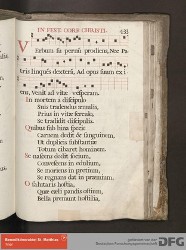 IN FESTO CORP. CHRISTI.
Verbum su pernũ prodiens, Nec Pa
tris linquẽs dexterã, Ad opus suum exi
ens, Venit ad vitæ vesperam.
In mortem a discipulo
Suis tradendus æmulis,
Prius in vitæ ferculo,
Se tradidit discipulis.
Quibus sub bina specie
Carnem dedit & sanguinem,
Ut duplicis substantiæ
Totum cibaret hominem.
Se nascens dedit socium,
Convescens in edulium,
Se moriens in pretium,
Se regnans dat in præmium.
O salutaris hostia,
Quæ cæli pandis ostium,
Bella premunt hostilia,
DFG